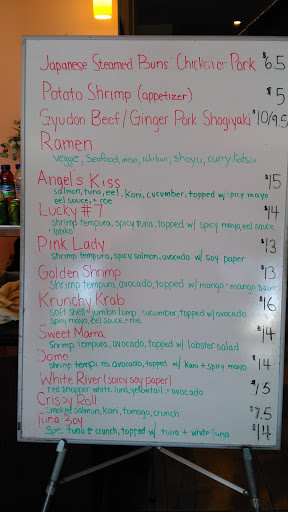 Japanese Steamed Buns: Chicken or Pork $6.5
Potato Shrimp (appetizer) $5
Gyudon Beef/Ginger Pork Shogiyaki $10/9.5
Ramen
veggie, Seafood, miso, ichiban, shoyu, curry katsu
Angel's Kiss $15
salmon, tuna, eel, Kani, cucumber, topped w/ spicy mayo
eel sauce, + roe
Lucky #7 $14
Shrimp tempura, spicy tuna, topped w/ spicy mayo, eel sauce,
+ tobiko
Pink Lady $13
Shrimp tempura, spicy salmon, avocado w/ soy paper
Golden Shrimp $13
Shrimp tempura, avocado, topped w/ mango + mango sauce
Krunchy Krab $16
soft shell, jumbo lump, cucumber, topped w/ avocado
spicy mayo, eel sauce + roe
Sweet Mama $14
shrimp tempura, avocado, topped w/ lobster salad
Domo $14
shrimp tempura avocado, topped w/ kani + spicy mayo
White River (spicy soy paper)
red snapper, white tuna, yellowtail + avocado
Crispy Roll
smoked salmon, kani, tamago, crunch
Tuna Boy $14
tuna + crunch, topped w/ tuna + white tuna